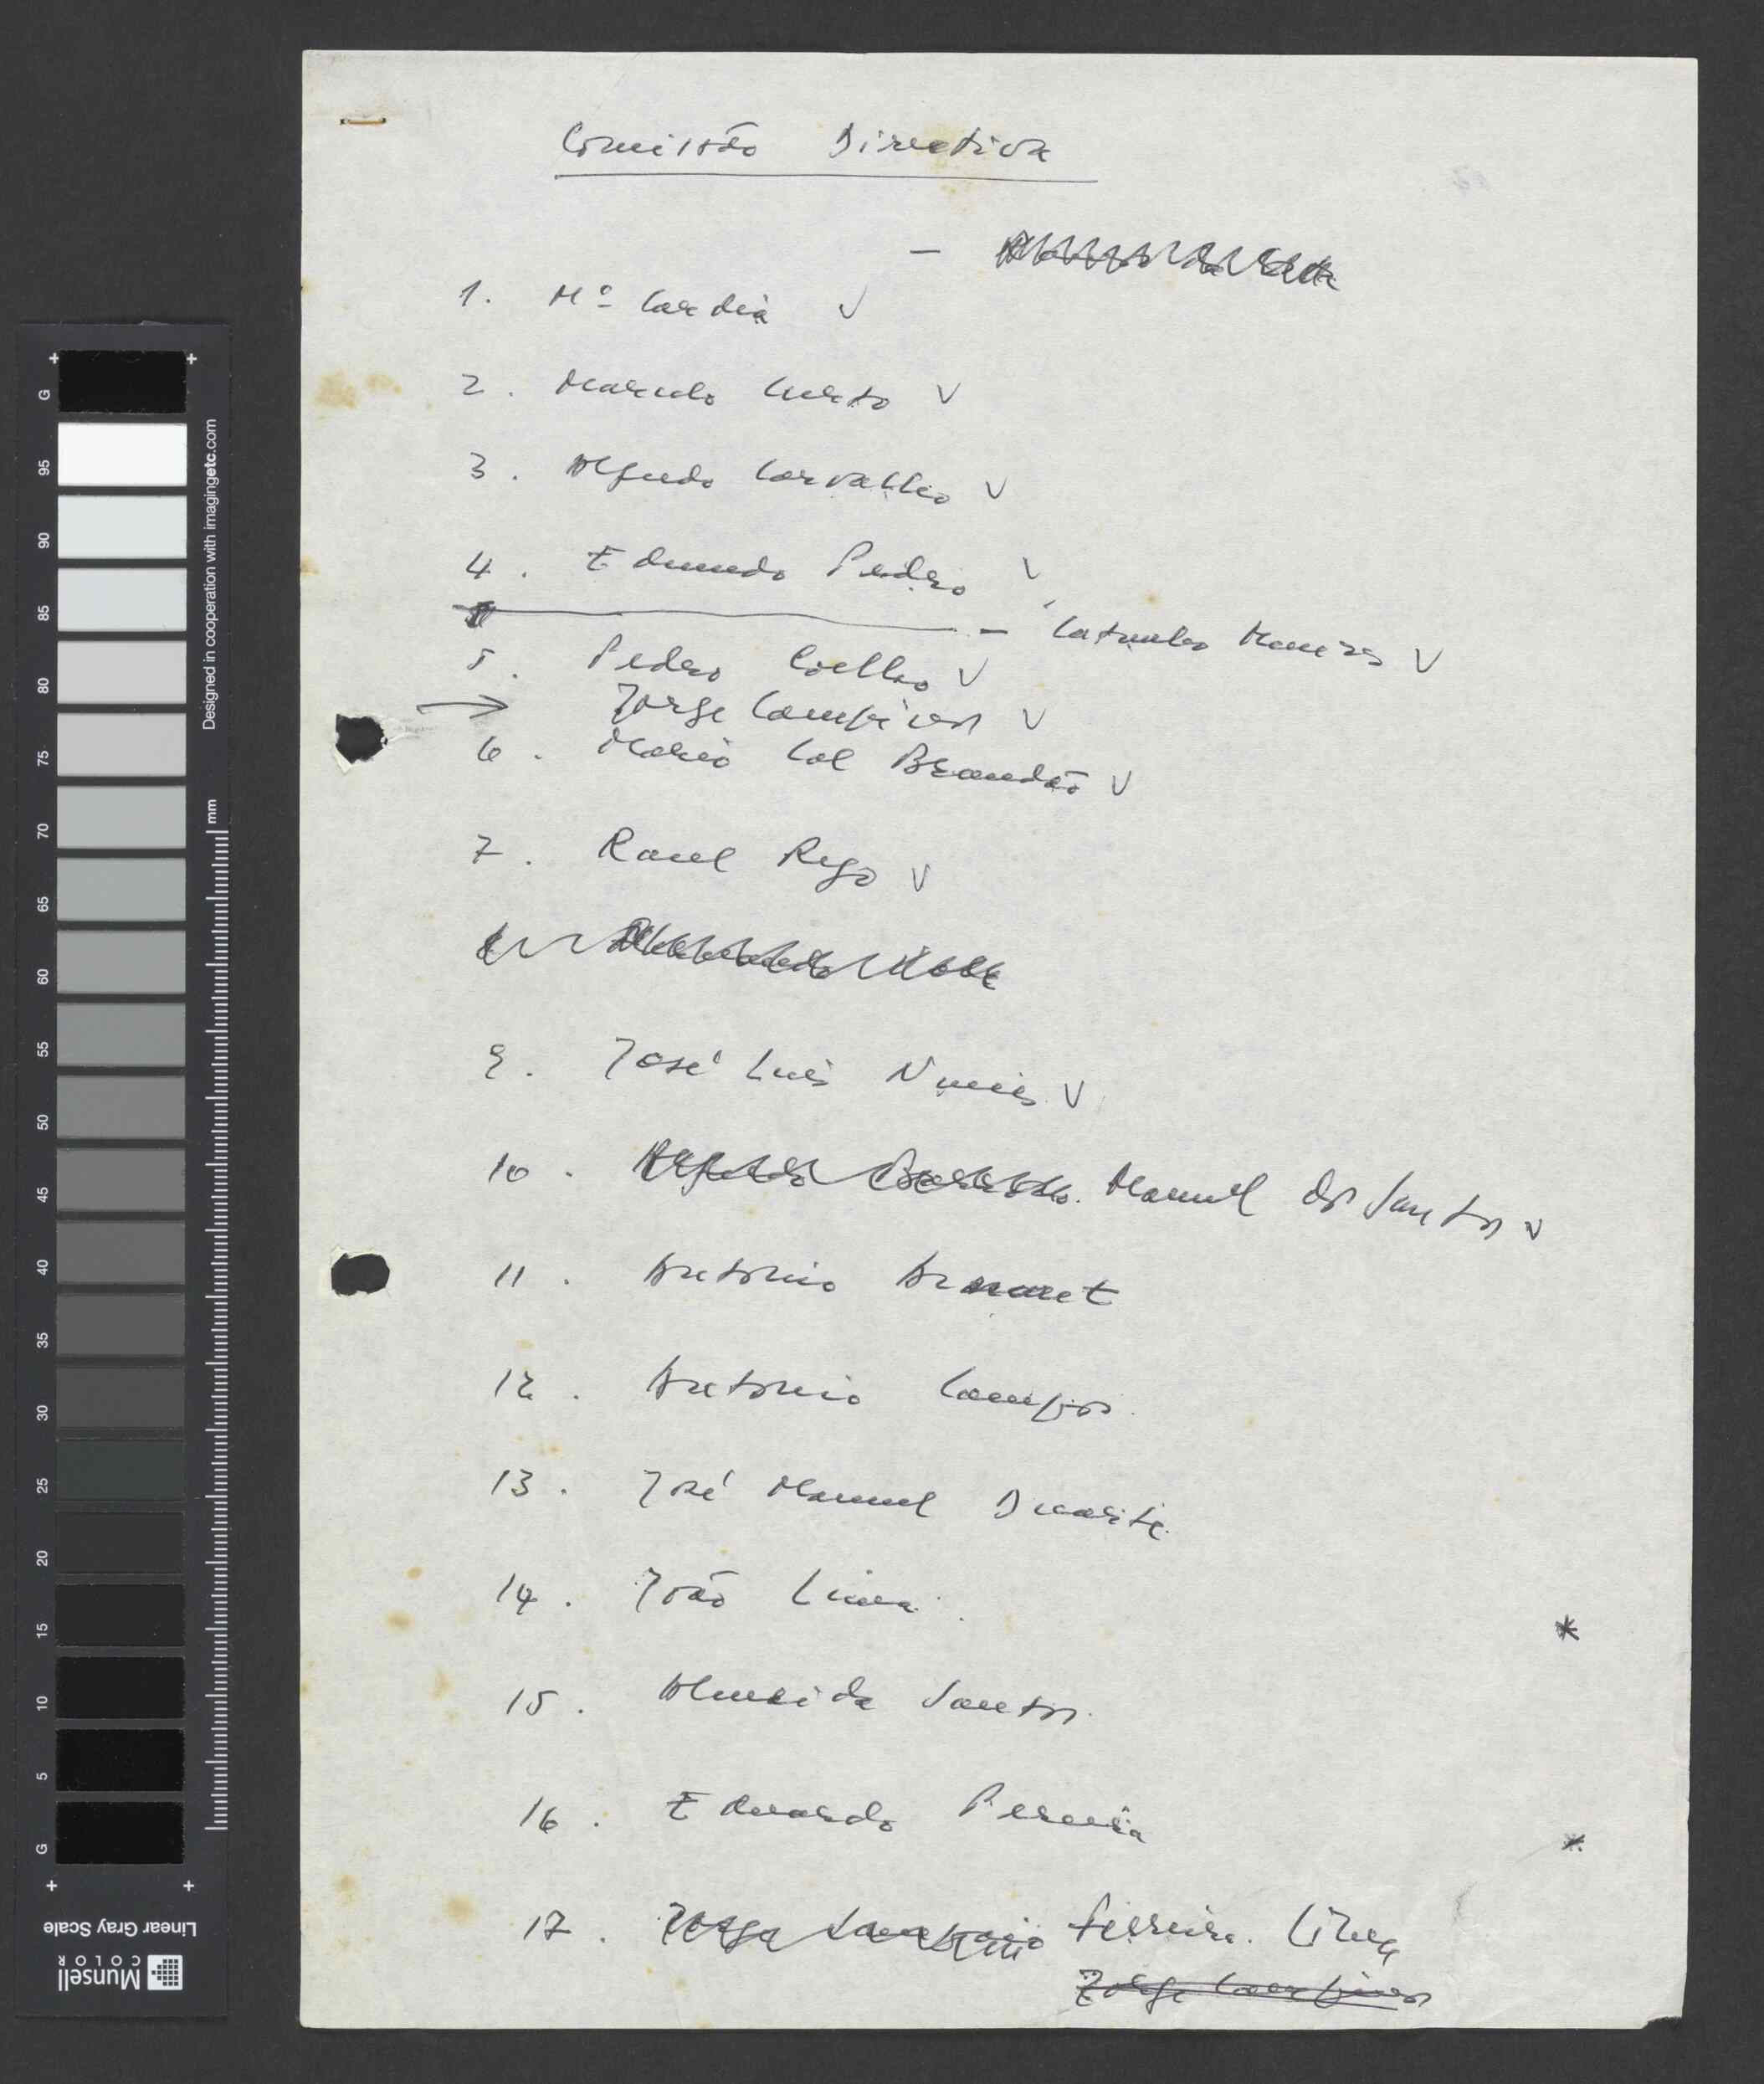 Comissão Directiva
1. Mº Cardia V
2. Marcelo Curto V
3. Alfredo Carvalho V
4. Edmundo Pedro V
- Catanho Menezes V
5. Pedro Coelho V
→ Jorge Campinos V
6. Mário Cal Brandão V
7. Raul Rego V
9. José Luís Nunes V
10. Manuel dos Santos V
11. António Arnaut
12. António Campos.
13. José Manuel Duarte.
14. João Lima.
*
15. Almeida Santos.
16. Eduardo Pereira
*
17. Jorge Sampaio Ferreira Lima
Jorge Campinos
G
95
90
85
80
75
70
65
60
55
50
45
40
35
30
25
20
15
10
5
G
Designed in cooperation with imagingetc.com
mm
Linear Gray Scale
Munsell
COLOR